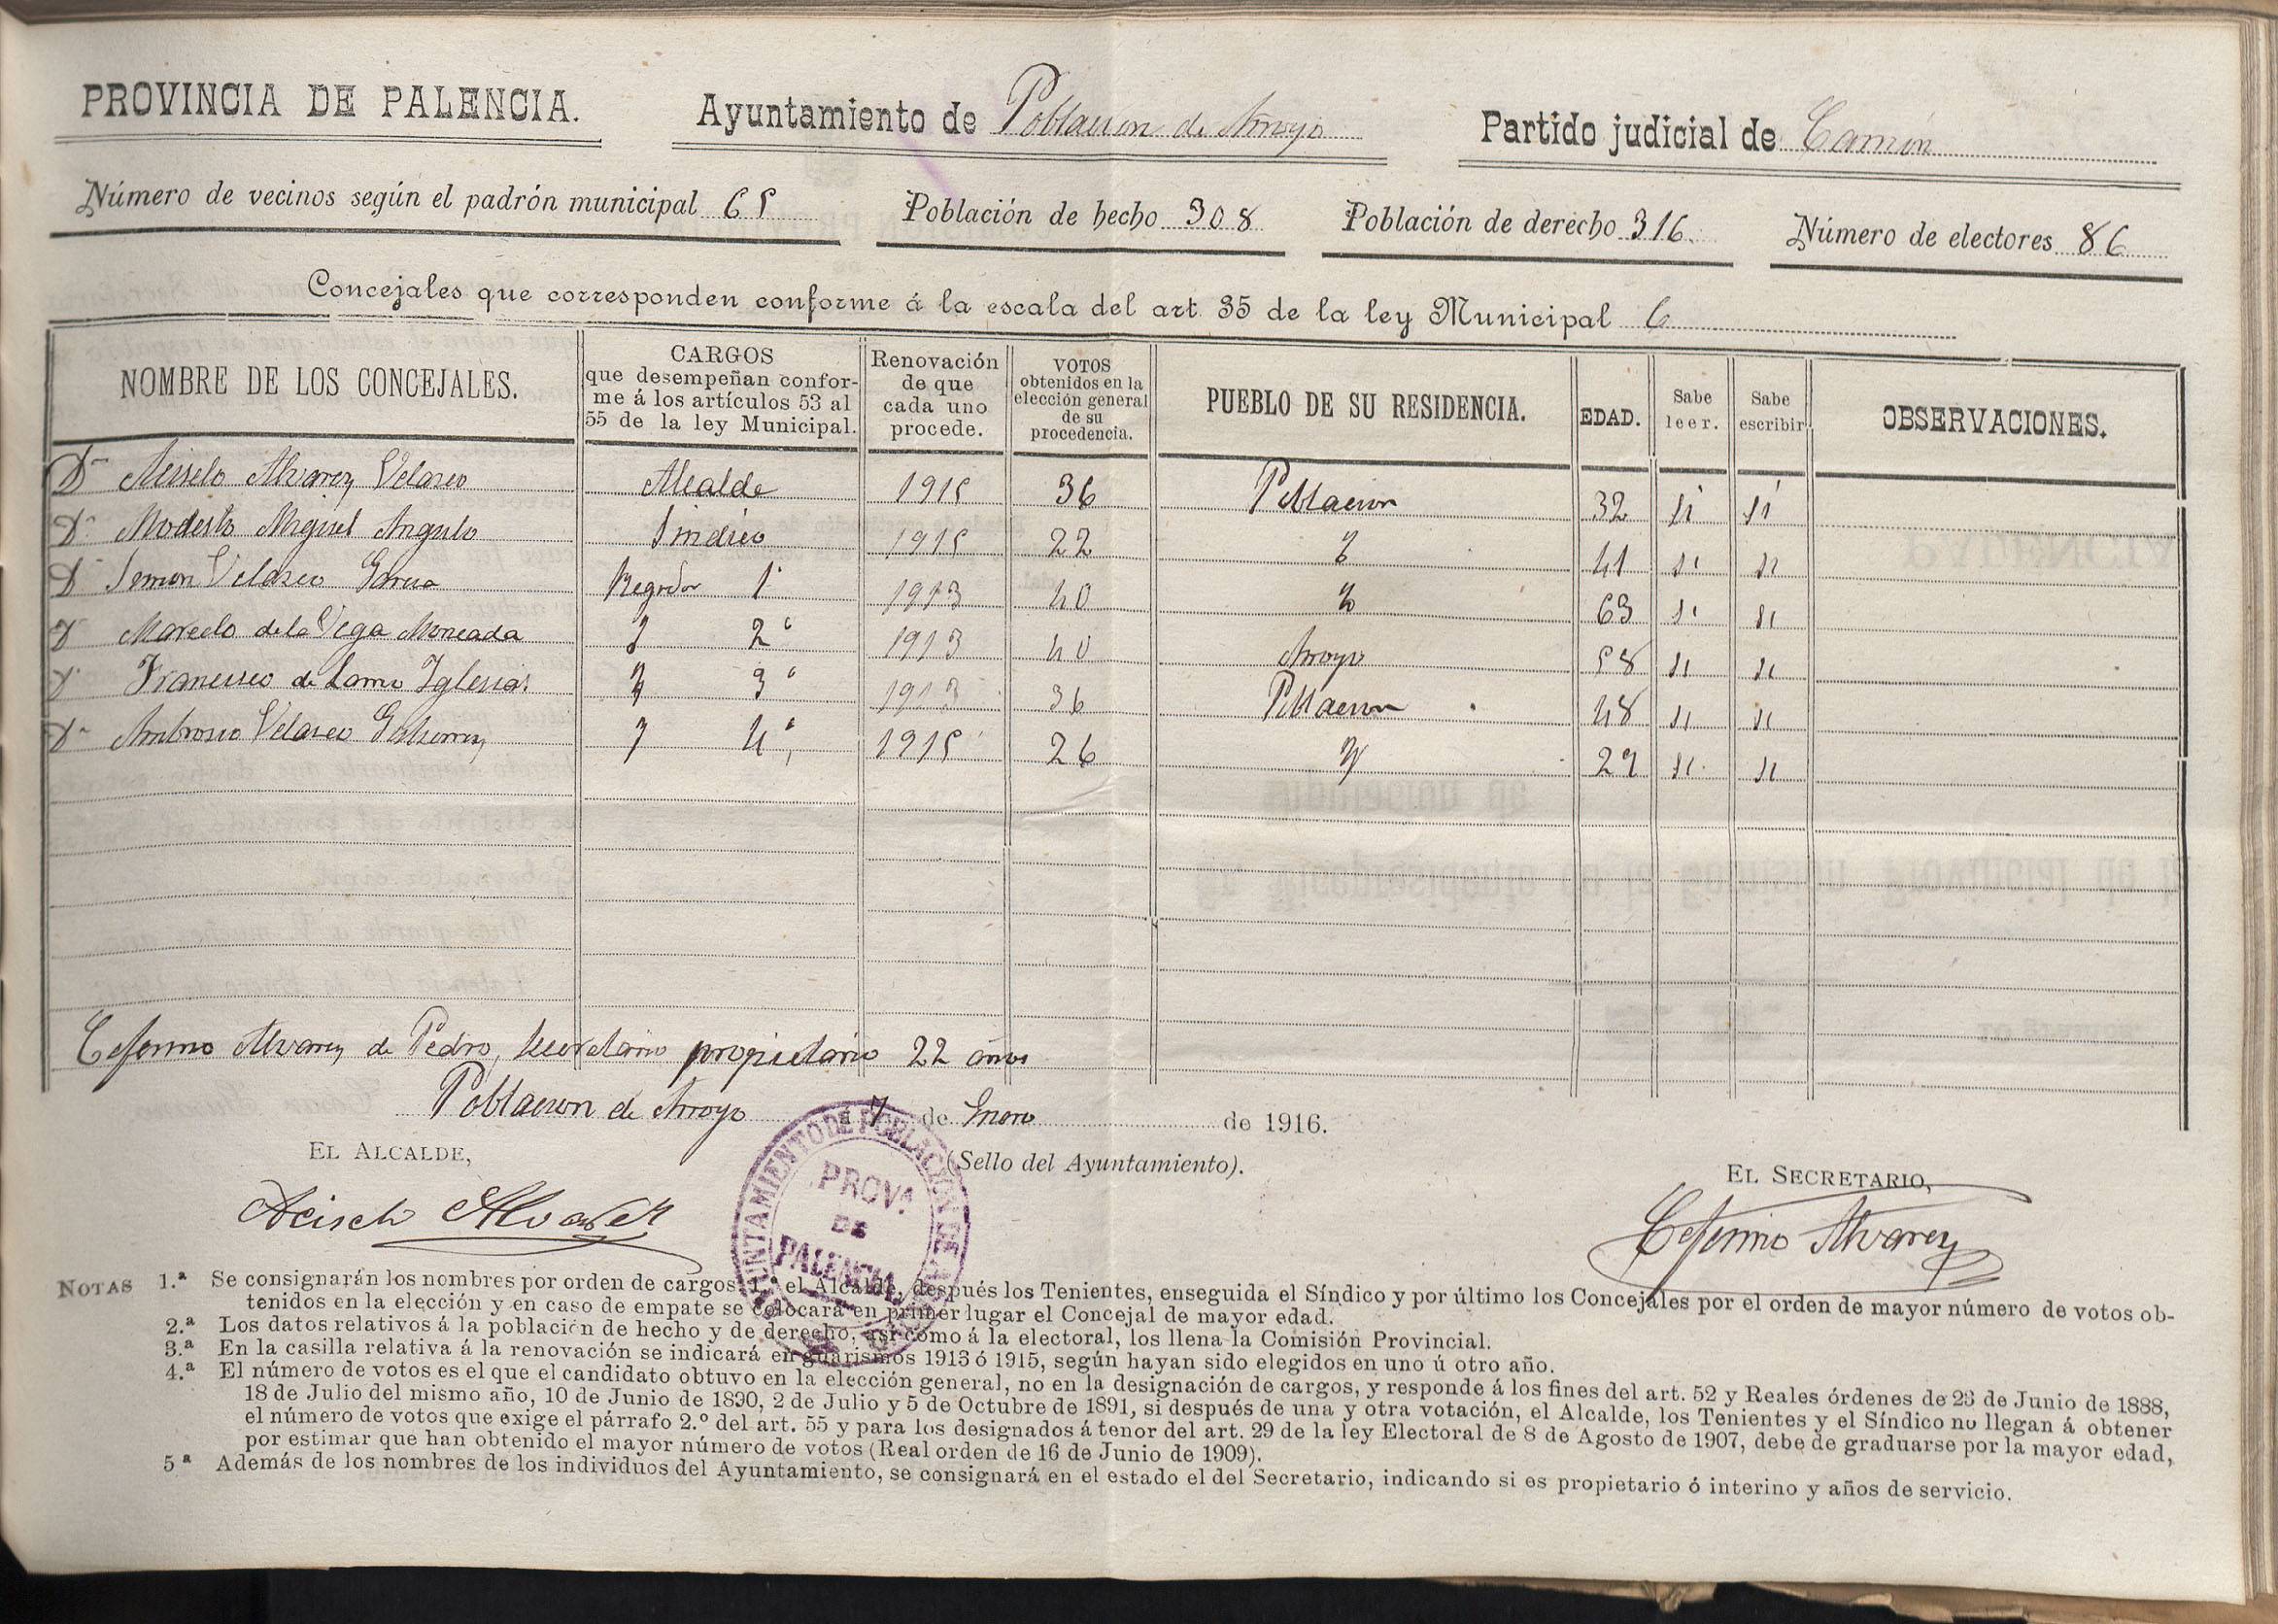 PROVINCIA DE PALENCIA. Ayuntamiento de Poblacion de Arroyo Partido judicial de Carrión
Número de vecinos según el padrón municipal 65 Población de hecho 308 Población de derecho 316. Número de electores 86
Concejales que corresponden conforme á la escala del art. 35 de la ley Municipal 6
NOMBRE DE LOS CONCEJALES. CARGOS que desempeñan conforme á los artículos 53 al 55 de la ley Municipal. Renovación de que cada uno procede. VOTOS obtenidos en la elección general de su procedencia. PUEBLO DE SU RESIDENCIA. EDAD. Sabe leer. Sabe escribir OBSERVACIONES.
Dn Acisclo Alvarez Velasco Alcalde 1915 36 Poblacion 32 si si
Dn Modesto Miguel Angulo Sindico 1915 22 " 41 si si
Dn Simon Velasco Garcia Regidor 1º 1913 40 " 63 si si
Dn Marcelo de la Vega Moncada " 2º 1913 40 Arroyo 58 si si
Dn Francisco de Lamo Iglesias " 3º 1913 36 Poblacion 48 si si
Dn Ambrosio Velasco Gutierrez " 4º 1915 26 " 29 si si
Ceferino Alvarez de Pedro, Secretario propietario 22 años
Poblacion de Arroyo á 7 de Enero de 1916.
EL ALCALDE,
(Sello del Ayuntamiento).
EL SECRETARIO,
Acisclo Alvarez
Ceferino Alvarez
AYUNTAMIENTO DE POBLACION DE ARROYO
PROVA.
DE
PALENCIA
NOTAS 1.ª Se consignarán los nombres por orden de cargos, 1.º el Alcalde, después los Tenientes, enseguida el Síndico y por último los Concejales por el orden de mayor número de votos ob-
tenidos en la elección y en caso de empate se colocará en primer lugar el Concejal de mayor edad.
2.ª Los datos relativos á la población de hecho y de derecho, así como á la electoral, los llena la Comisión Provincial.
3.ª En la casilla relativa á la renovación se indicará en guarismos 1913 ó 1915, según hayan sido elegidos en uno ú otro año.
4.ª El número de votos es el que el candidato obtuvo en la elección general, no en la designación de cargos, y responde á los fines del art. 52 y Reales órdenes de 23 de Junio de 1888,
18 de Julio del mismo año, 10 de Junio de 1890, 2 de Julio y 5 de Octubre de 1891, si después de una y otra votación, el Alcalde, los Tenientes y el Síndico no llegan á obtener
el número de votos que exige el párrafo 2.º del art. 55 y para los designados á tenor del art. 29 de la ley Electoral de 8 de Agosto de 1907, debe de graduarse por la mayor edad,
por estimar que han obtenido el mayor número de votos (Real orden de 16 de Junio de 1909).
5.ª Además de los nombres de los individuos del Ayuntamiento, se consignará en el estado el del Secretario, indicando si es propietario ó interino y años de servicio.